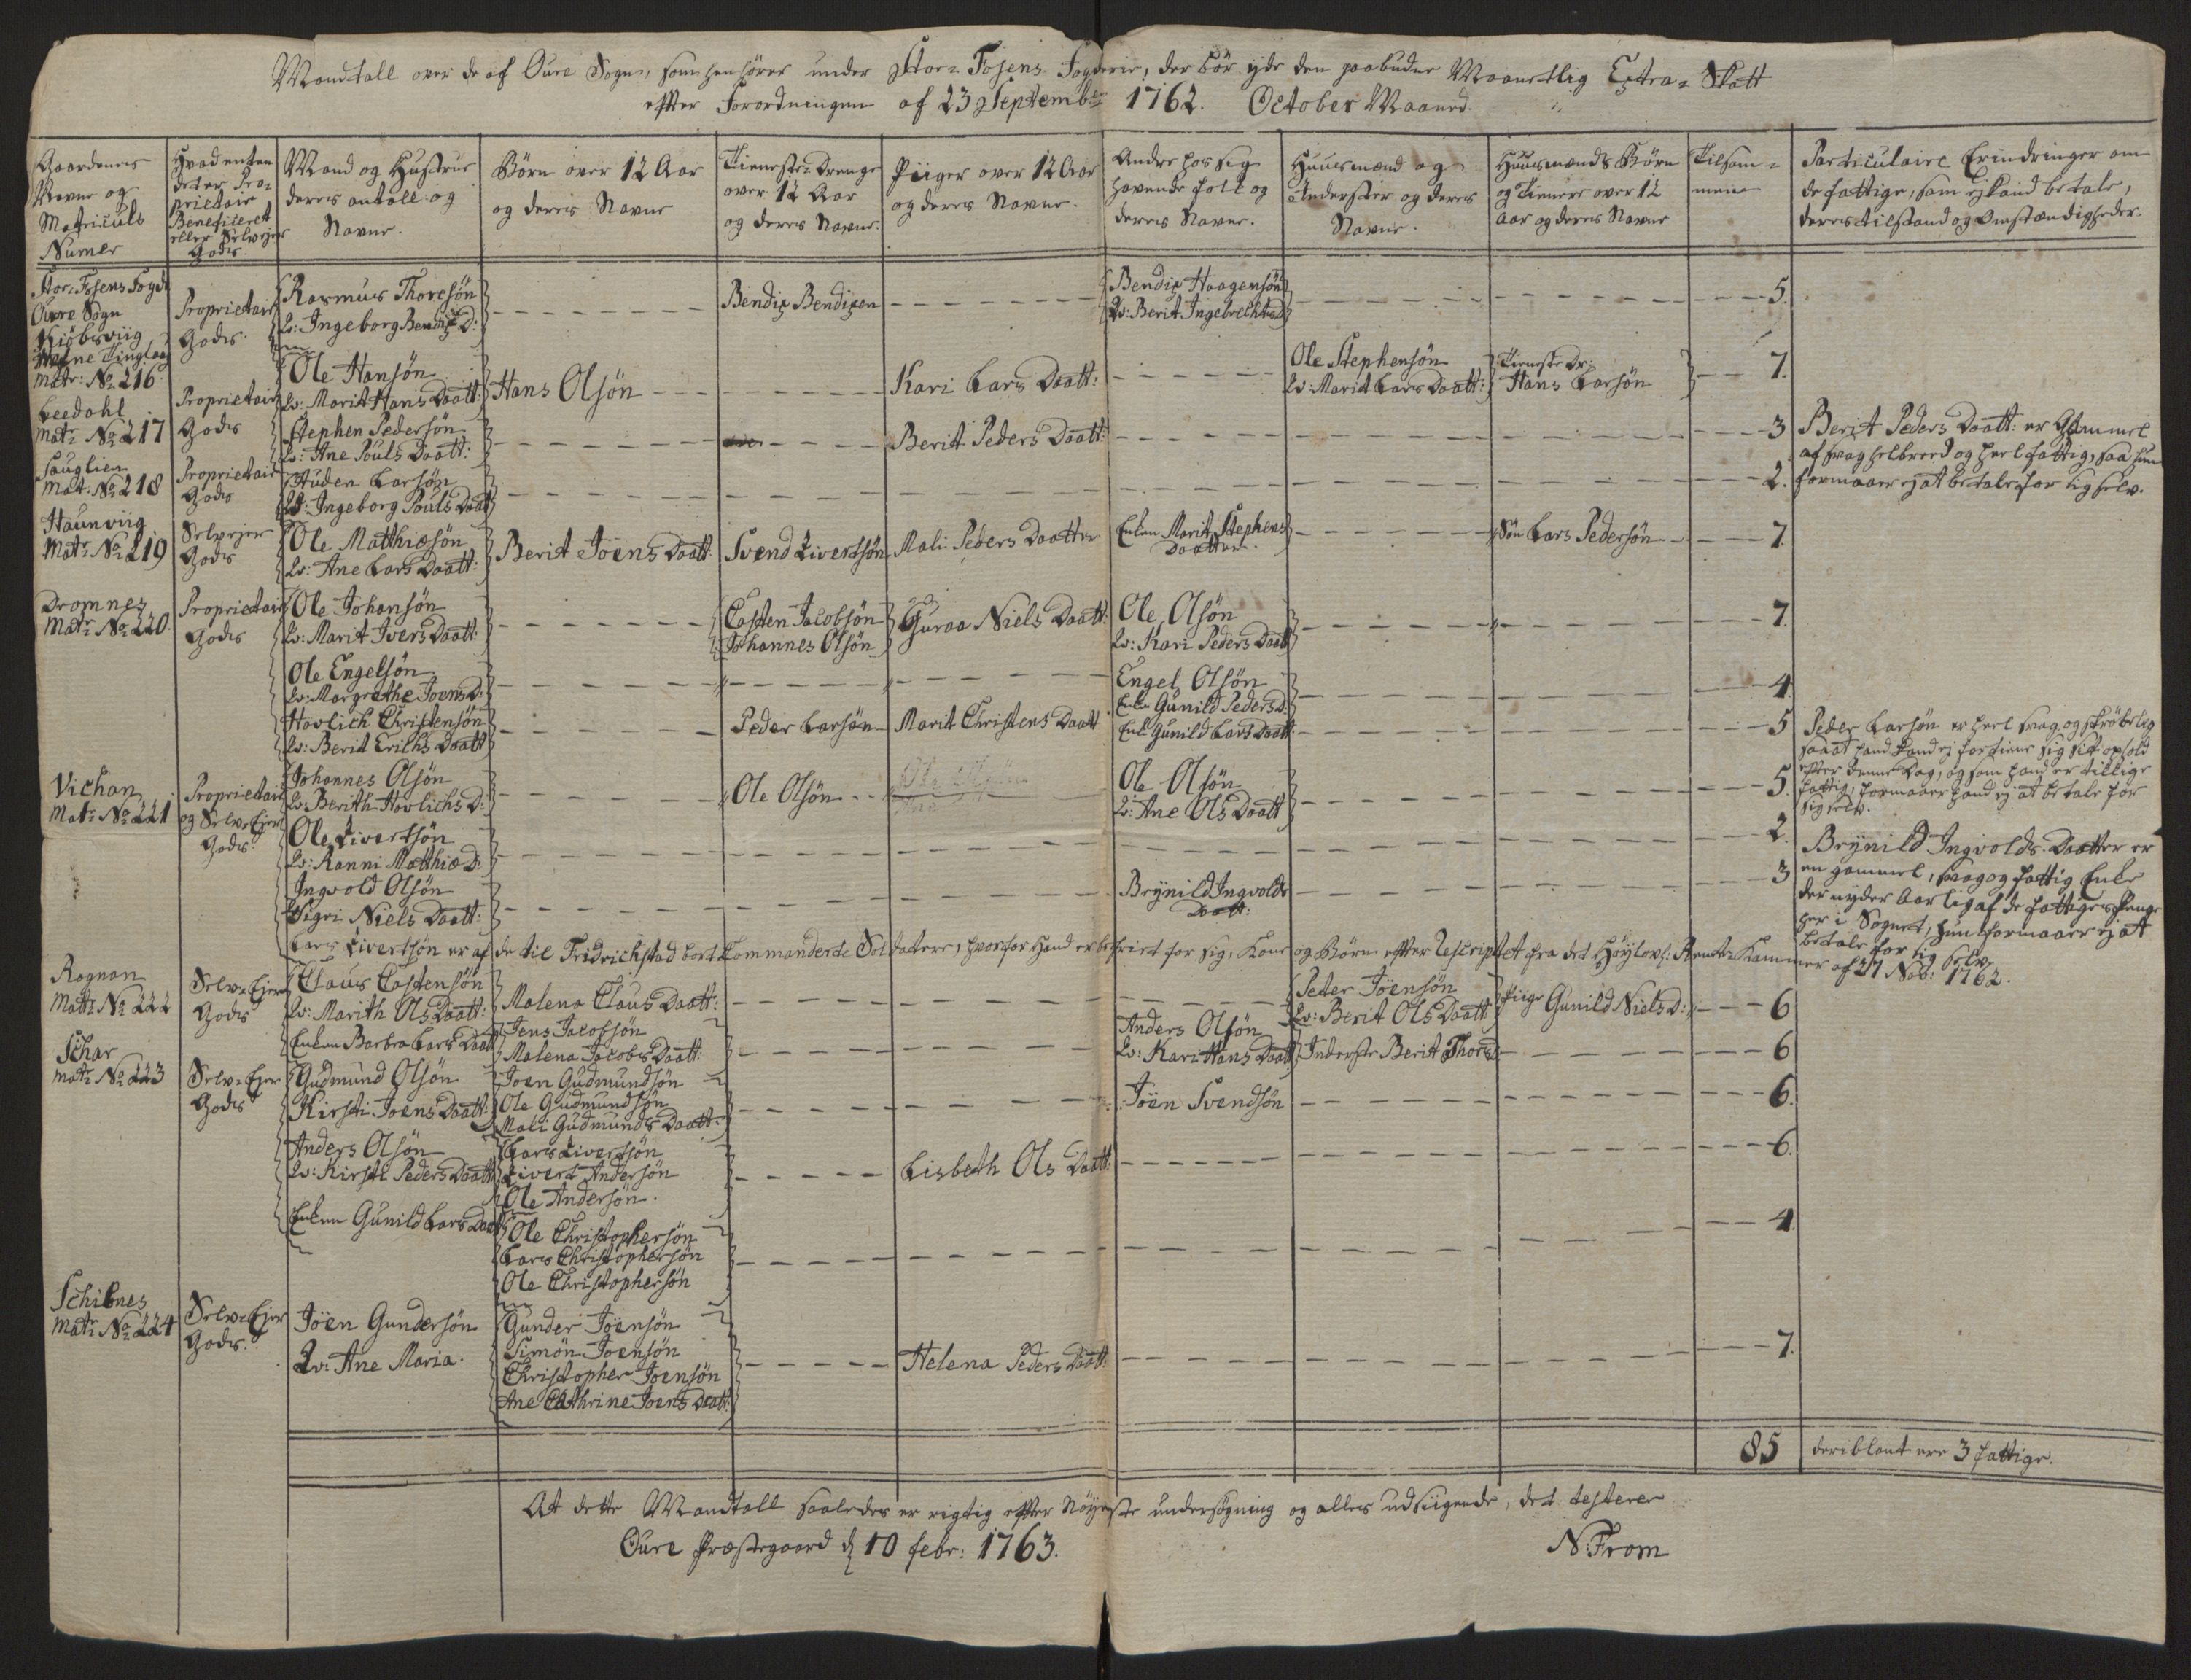 Mandtall over de af Öure Sogn, som henhörer under Stor-Fosens Fogderie, der bör yde den paabudne Maanetlig Extra-Skatt
efter Forordningen af 23 Septembr 1762. October Maaned.
Gaardenes Navne og Matriculs Numer
Hvad enten det er Proprietair Beneficeret eller Selvejer Gods
Mand og Hustrue deres antall og Navne.
Börn over 12 Aar og deres Navne
Tieneste-Drenge over 12 Aar og deres Navne.
Piiger over 12 Aar og deres Navne.
Andre hos sig havende folk og deres Navne.
Huusmænd og Inderster og deres Navne.
Huusmænds Börn og Tienere over 12 Aar og deres Navne
Tilsammen
Particulaire Erindringer om de fattige, som ej kand betale, deres tilstand og Omstændigheder.
Stor-Fosens Fogd:
Öure Sogn
Kiöbsviig
Tinglaug
Matr: No. 216.
Proprietair Gods
Rasmus Thoresön
Qv: Ingeborg Bendix D:
Bendix Bendixen
Bendix Haagensön
Qv: Berit Ingebrechts D:
5.
Ole Hansön
Qv: Marit Hans Daatt:
Hans Olsön
Kari Lars Daatt:
Ole Stephensön
Qv: Marit Lars Daatt:
Tieneste Dr:
Hans Larsön
7.
Leedahl
Matr: No. 217
Proprietair Gods
Stephen Pedersön
Qv: Ane Pouls Daatt:
Berit Peders Daatt:
3
Berit Peders Daatt: er Gammel
af svag helbreed og heel fattig, saa hun
formaaer ej at betale for sig selv.
Sauglien
Mat. No. 218
Proprietair Gods
Auden Larsön
Qv: Ingeborg Pouls Daatt
2.
Haunviig
Matr: No. 219
Selvejer Gods
Ole Mathiesön
Qv: Ane Lars Daatt:
Berit Joens Daatt:
Svend Sivertsön
Mali Peders Daatter
Enken Marit Stephens Daatter.
Sön Lars Pedersön
7.
Dromnes
Matr: No. 220.
Proprietair Gods
Ole Johansön
Qv: Marit Ivers Daatt:
Casten Jacobsön
Johannes Olsön
Guraa Niels Daatt:
Ole Olsön
Qv: Kari Peders Daatt
7.
Ole Engelsön
Qv: Margrethe Joens D:
Engel Olsön
Enke Gunild Peders D:
4.
Hovlich Christensön
Qv: Berit Erichs Daatt
Peder Larsön
Marit Christens Daatt
Enk: Gunild Lars Daatt:
5
Peder Larsön er heel svag og skröbelig
saa at hand kand ej fortiene sig sit ophold
efter denne Dag, og som hand er tillige
fattig, formaaer hand ej at betale for
sig selv.
Vichan
Matr: No. 221
Proprietair og Selv-Ejer Gods.
Johannes Olsön
Qv: Berith Hovlichs D:
Ole Olsön
Ole Olsön
Qv: Ane Ols Daatt
5.
Ole Sivertsön
Qv: Ranni Matthie D:
2.
Ingvold Olsön
Sigri Niels Daatt:
Brynild Ingvolds Daatt:
3
Brynild Ingvolds Daatter er
en gammel, svag og fattig Enke
der nyder Aarlig af de fattiges Penge
her i Sognet, hun formaaer ej at
betale for sig selv.
Lars Sivertsön er af de til Fridrichstad bort Commanderte Soldatere, hvorfor Hand er befriet for sig, Kone og Börn efter Rescriptet fra det Höylovl: Rente-Kammer af 27 Nov: 1762.
Rognan
Matr: No. 222
Selv-Ejer Gods
Claus Castensön
Qv: Marith Ols Daatt:
Malena Claus Daatt:
Peter Joensön
Qv: Berit Ols Daatt
Piige Gunild Niels D:
6
Enken Barbra Lars Daatt
Jens Jacobsön
Malena Jacobs Daatt:
Anders Olsön
Qv: Kari Hans Daatt
Inderste Berit Thores D:
6
Schar
Matr: No. 223
Selv-Ejer Gods
Gudmund Olsön
Kirsti Joens Daatt:
Joen Gudmundsön
Ole Gudmundsön
Mali Gudmunds Daatt:
Joen Svendsön
6.
Anders Olsön
Qv: Kirsti Peders Daatt
Lars Sivertsön
Sivert Andersön
Ole Andersön.
Lisbeth Ols Daatt:
6.
Enken Gunild Lars Daatt
Ole Christophersön
Lars Christophersön
Ole Christophersön
4.
Schibnes
Matr: No. 224
Selv-Ejer Gods.
Joen Gundersön
Qv: Ane Maria.
Gunder Joensön
Simon Joensön
Christopher Joensön
Ane Cathrine Joens Daatt:
Helena Peders Daatt:
7.
85
deriblant ere 3 fattige.
At dette Mandtall saaledes er rigtig efter Nöyeste undersögning og alles udsigende, det testerer
Öure Præstegaard d 10 febr: 1763.
N. From